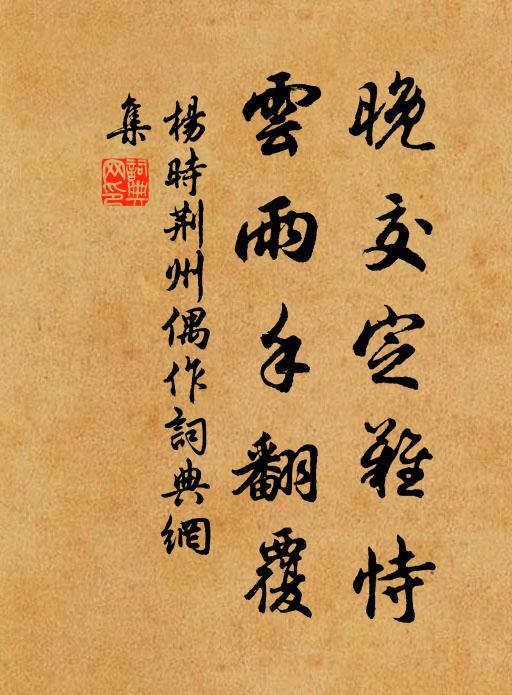 晚交定難恃
雲雨手翻覆
楊時荆州偶作詞典網
集
詞典網印